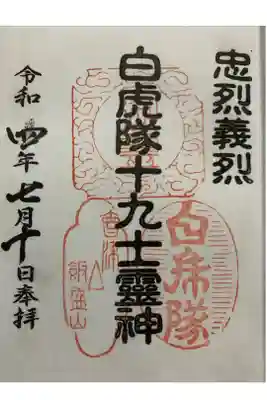 忠烈義烈
白虎隊十九士靈神
令和四年七月十日奉拝
白虎隊
會津
飯盛山